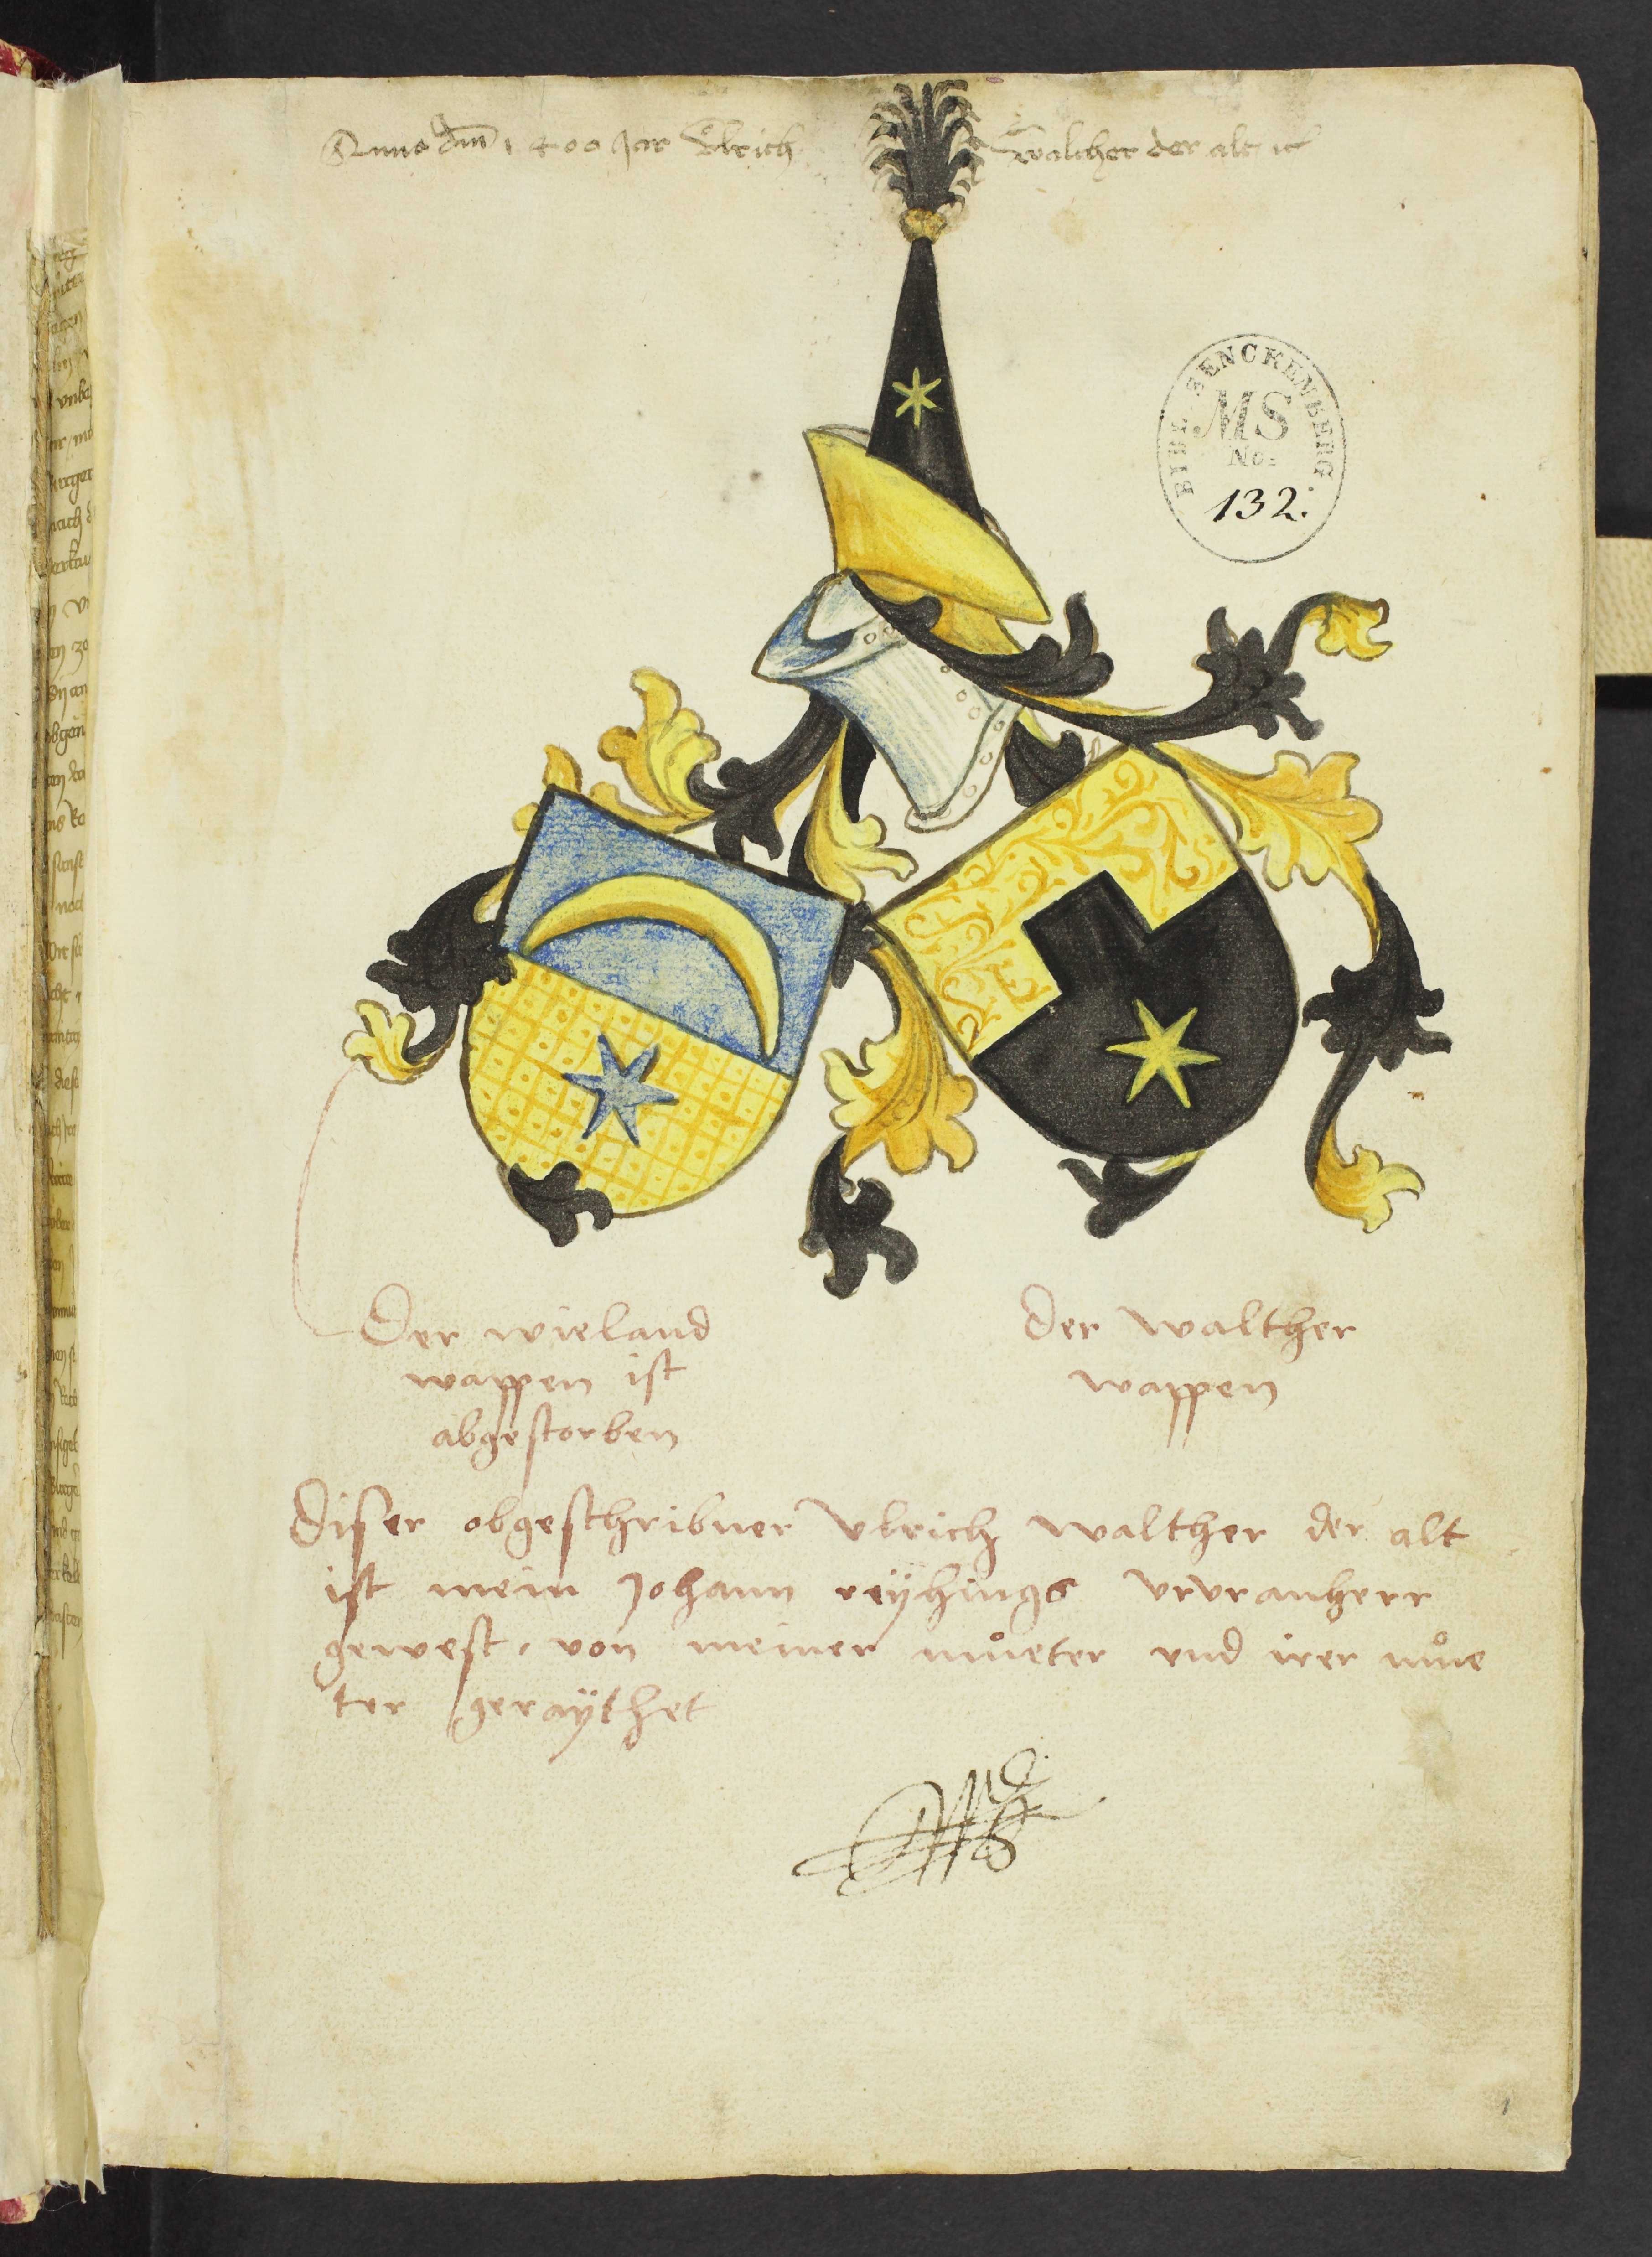 Anno dm̄ 1400 Jar Vlrich Walther der alt ⁊c
BIBL. SENCKENBERG.
MS
No.
132.
Der wieland
wappen ist
abgestorben
Der Walther
wappen
Diser obgeschribner Vlrich Walther der alt
ist mein Johann reÿhings vrvranherr
gewest, von meiner můeter vnd irer můe
ter geraÿthet
1